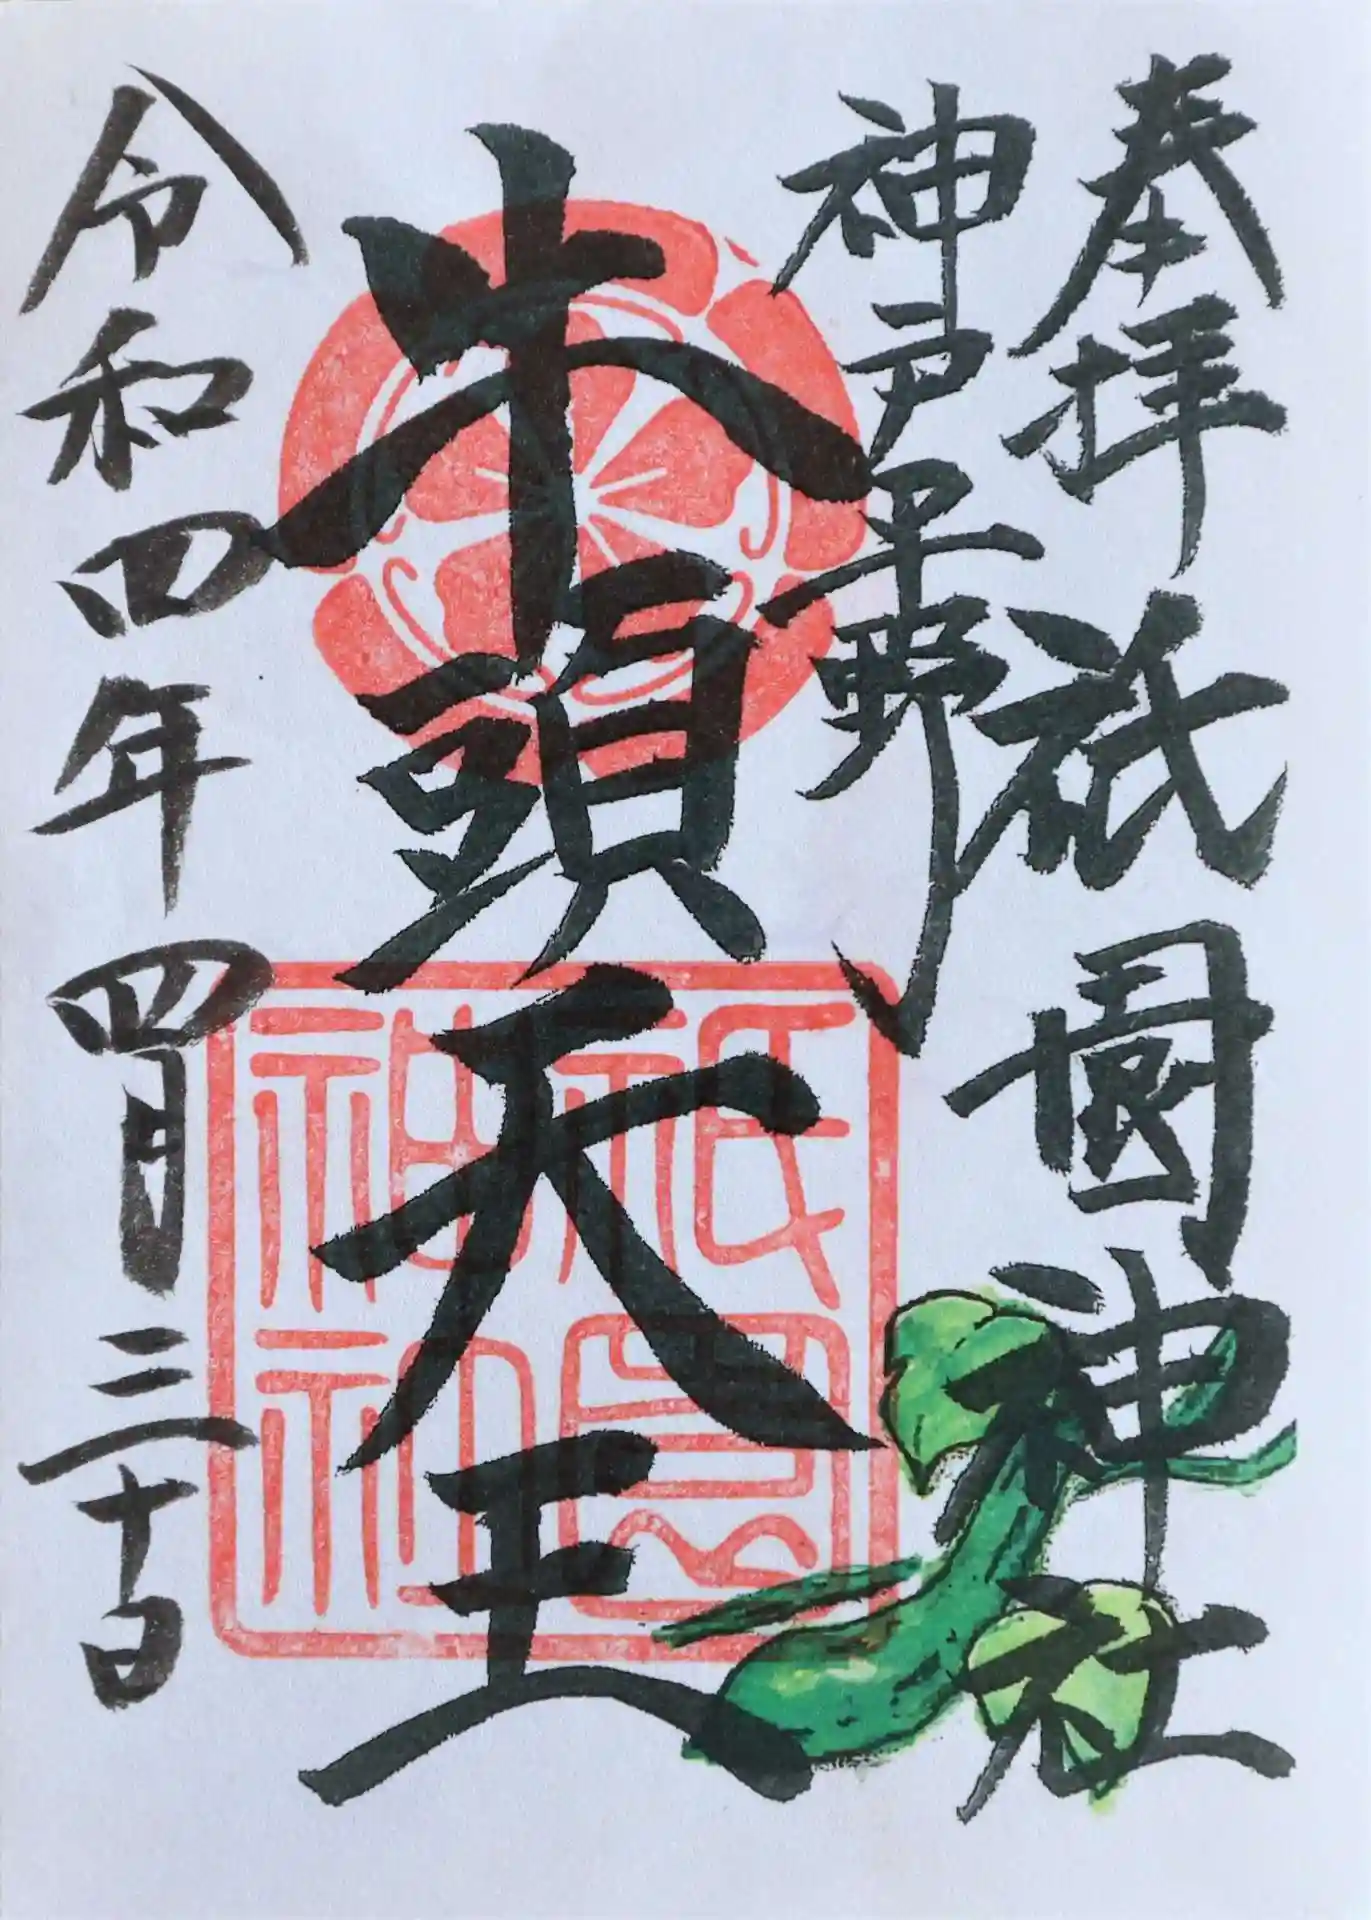 奉拝
祇園神社
神戸平野
牛頭天王
令和四年四月三十日
祇園
神社